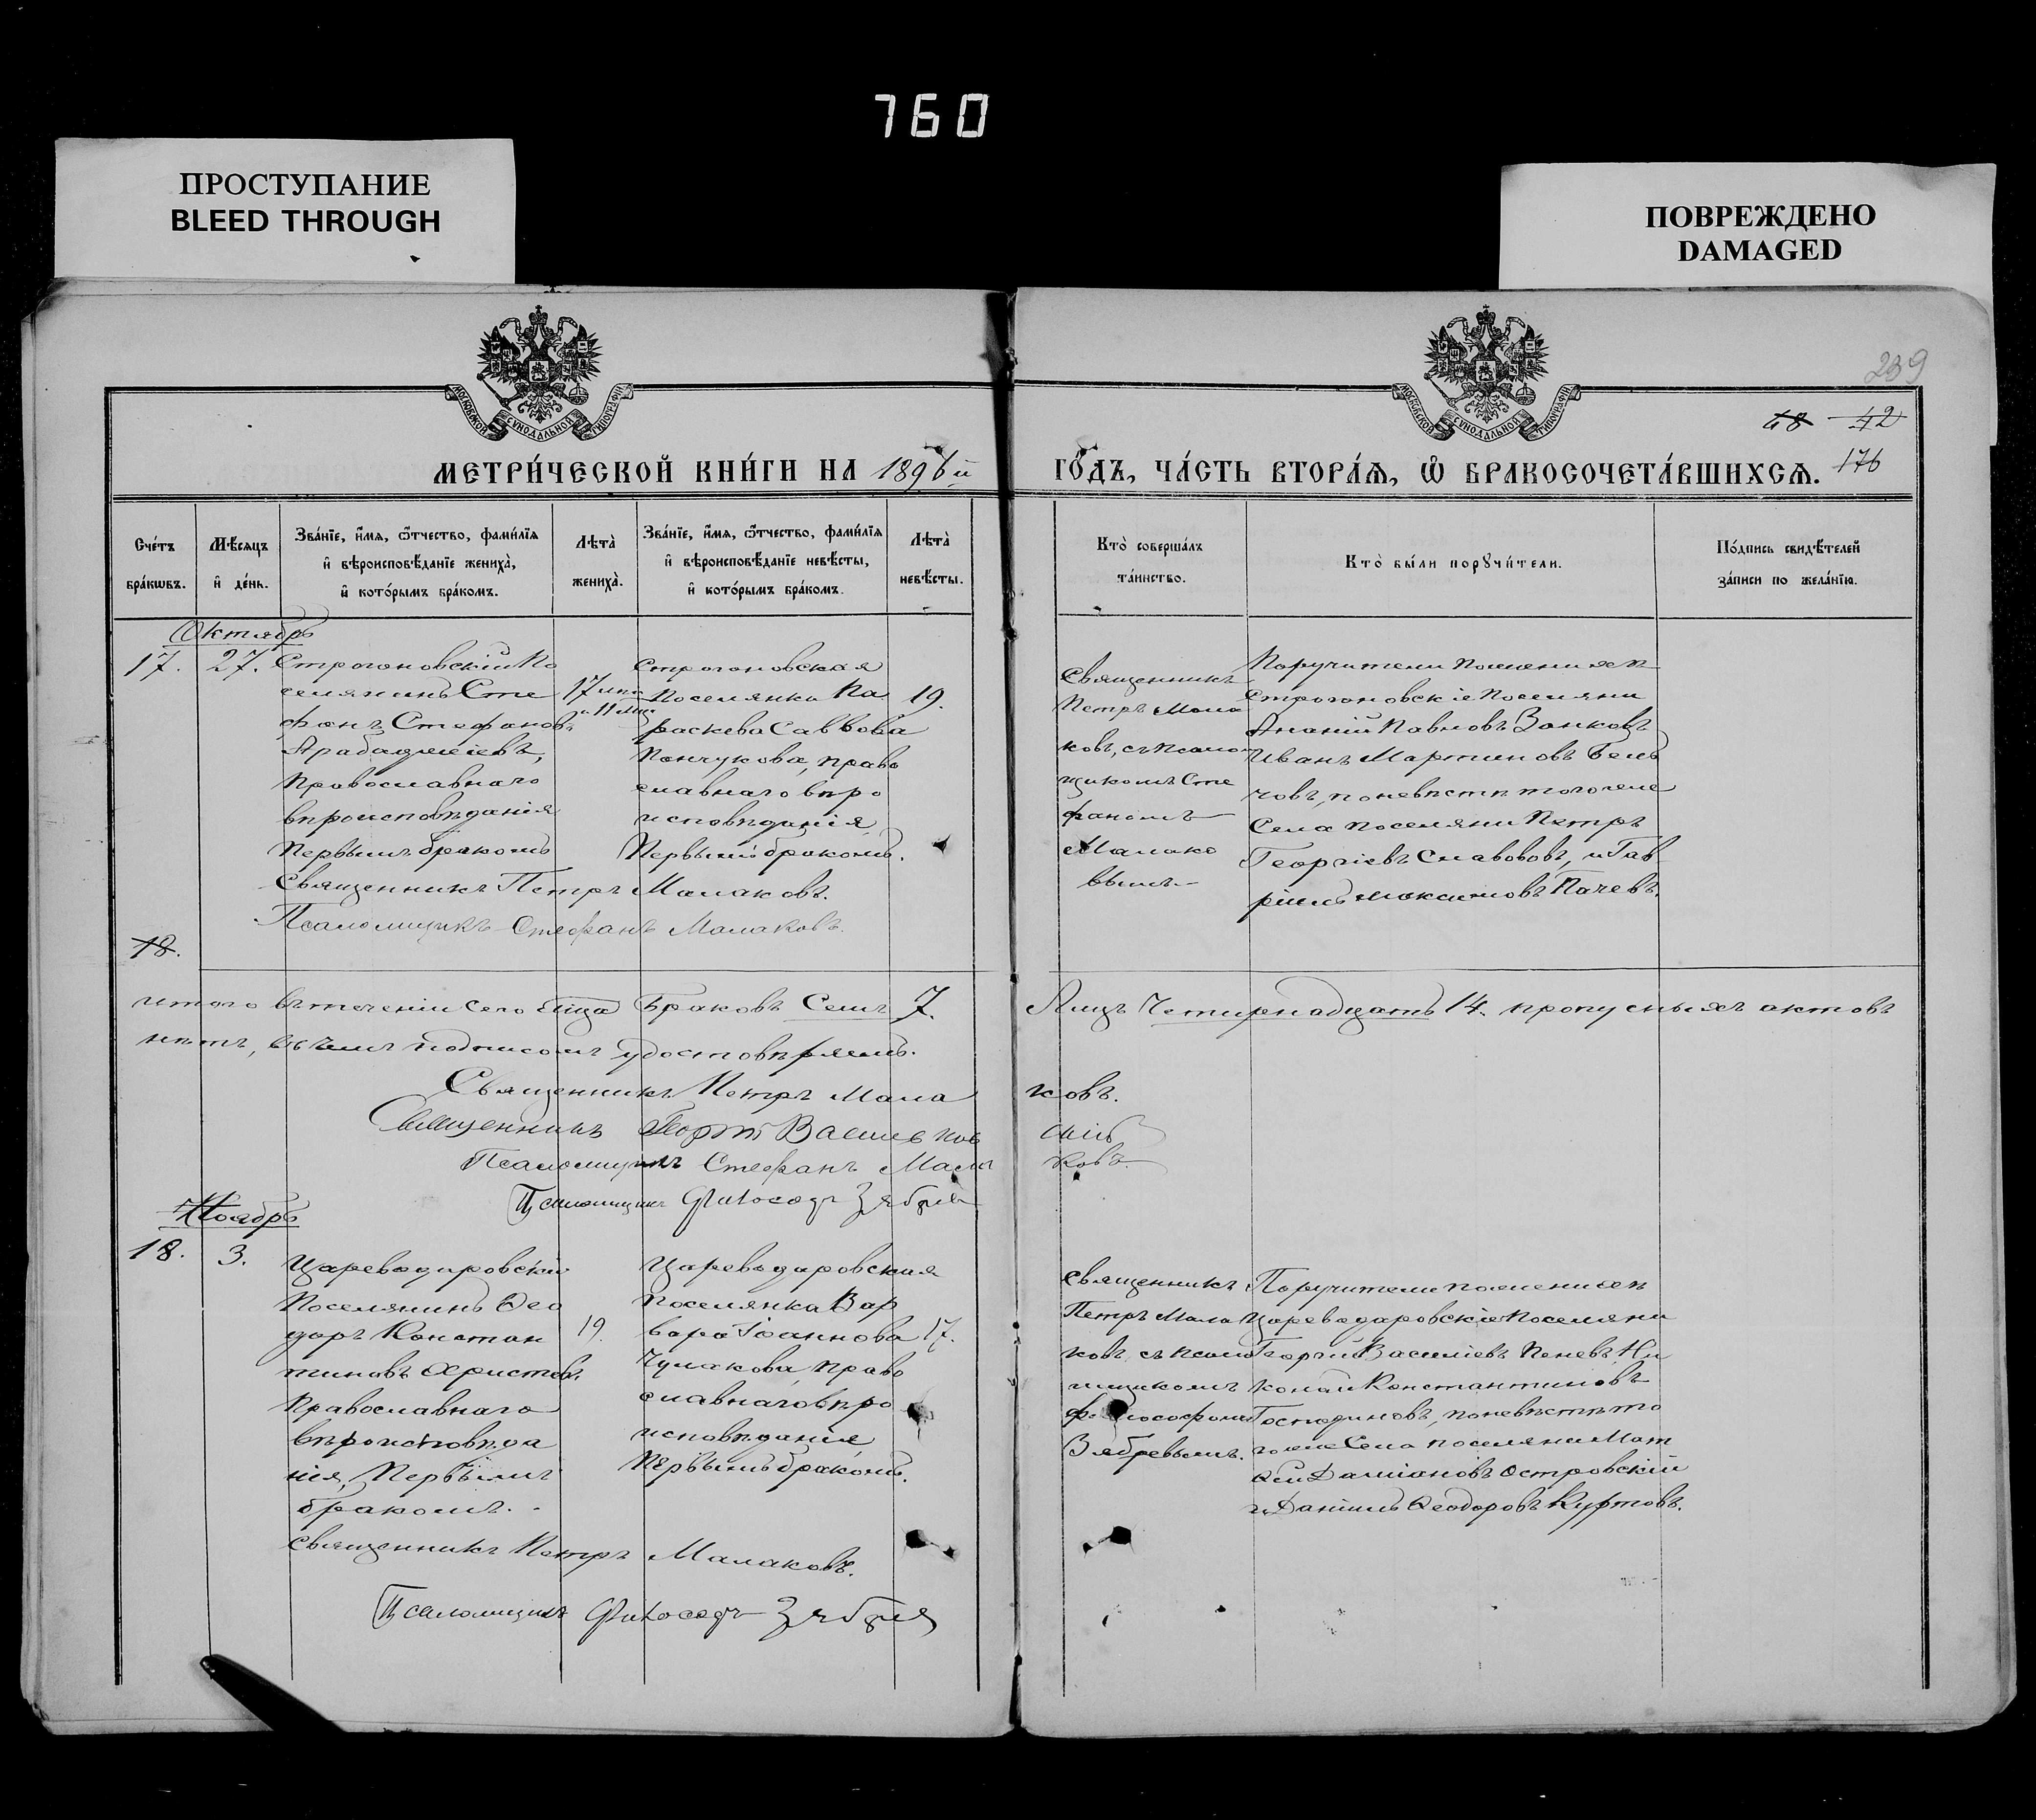 760
ПРОСТУПАНИЕ
BLEED THROUGH
ПОВРЕЖДЕНО
DAMAGED
239
48 42
176
МОСКОВСКОЙ СѴНОДАЛЬНОЙ ТИПОГРАФІИ
МОСКОВСКОЙ СѴНОДАЛЬНОЙ ТИПОГРАФІИ
МЕТРИ́ЧЕСКОЙ КНИ́ГИ НА 1896й
ГО́ДЪ, ЧА́СТЬ ВТОРА́Ѧ, Ѽ БРАКОСОЧЕТА́ВШИХСѦ.
Сче́тъ
бра́кѡвъ.
Мѣ́сѧцъ
и҆ де́нь.
Зва́нїе, и҆́мѧ, ѻ҆́тчество, фами́лїѧ
и҆ вѣроисповѣ́данїе жениха̀,
и҆ кото́рымъ бра́комъ.
Лѣта̀
жениха̀.
Зва́нїе, и҆́мѧ, ѻ҆́тчество, фами́лїѧ
и҆ вѣроисповѣ́данїе невѣ́сты,
и҆ кото́рымъ бра́комъ.
Лѣта̀
невѣ́сты.
Кто̀ соверша́лъ
та́инство.
Кто̀ бы́ли порꙋчи́тели.
По́дпись свидѣ́телей
за́писи по жела́нїю.
Октябрь
17.
27.
Строгоновскій По
селянинъ Сте
фанъ Стефановъ
Арабаджіевъ,
Православнаго
вѣроисповѣданія
Первымъ бракомъ
17 лѣтъ
и 11 мц
Строгоновская
Поселянка Па
раскева Саввова
Панчукова, право
славнаго вѣро
исповѣданія
Первымъ бракомъ.
19.
Священникъ
Петръ Мала
ковъ, съ псалом
щикомъ Сте
фаномъ
Малако
вымъ
Поручители по женихѣ
Строгоновскіе Поселяни
Ананій Павловъ Занковъ
Иванъ Мартиновъ Бель
човъ, по невѣстѣ тогоже
Села поселяни Петръ
Георгіевъ Славововъ, и Гав
ріилъ Максимовъ Пачевъ.
Священникъ Петръ Малаковъ.
Псаломщикъ Стефанъ Малаковъ.
18.
итого въ теченіи сего м͠ца Браковъ Семъ 7. Лицъ Четирнадцать 14. пропусныхъ актовъ
нѣтъ, въ чемъ подписомъ удостовѣряемъ.
Священникъ Петръ Малаковъ.
Священникъ Георгій
Псаломщикъ Стефанъ Малаковъ.
Псаломщикъ
Ноябрь
18.
3.
Цареводаровскій
Поселянинъ Ѳео
доръ Констан
тиновъ Христевъ
Православнаго
вѣроисповѣда
нія, Первымъ
бракомъ.
19.
Цареводаровская
поселянка Вар
вара Іоаннова
Чумакова, право
славнаго вѣро
исповѣданія
Первымъ бракомъ.
17.
Священникъ
Петръ Мала
ковъ съ псало
мщикомъ
Философомъ
Зябревымъ.
Поручители по женихѣ
Цареводаровскіе Поселяни
Георгій Василіевъ Пеневъ, Ни
колай Константиновъ
Господиновъ, по невѣстѣ то
гоже Села поселяни Мат
ѳей Даміановъ Островскій
и Даніилъ Ѳеодоровъ Куртовъ.
Священникъ Петръ Малаковъ.
Псаломщикъ